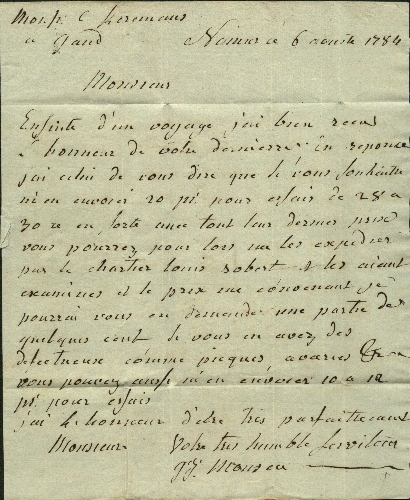 Monsr. C
a gand Namur ce 6 aouste 1784
Monsieur
Ensuite d'un voyage j'ai bien receu
l'honneur de votre derniere. En reponse
j'ai celui de vous dire que si vous souhaitte
m'en envoier 20 ps. pour essais de 28 a
30 en forte avec tout leur dernier prix
vous pourrez pour lors me les expedier
par le chartier louis robert & les aiant
examinés et le prix me convenant je
pourrai vous en demander une partie de
quelques cent. si vous en avez des
defectueuse comme piqués, avariés &c
vous pouvez aussi m'en envoier 10 a 12
ps. pour essais
j'ai le honneur d'etre tres parfaittement
Monsieur Votre tres humble serviteur